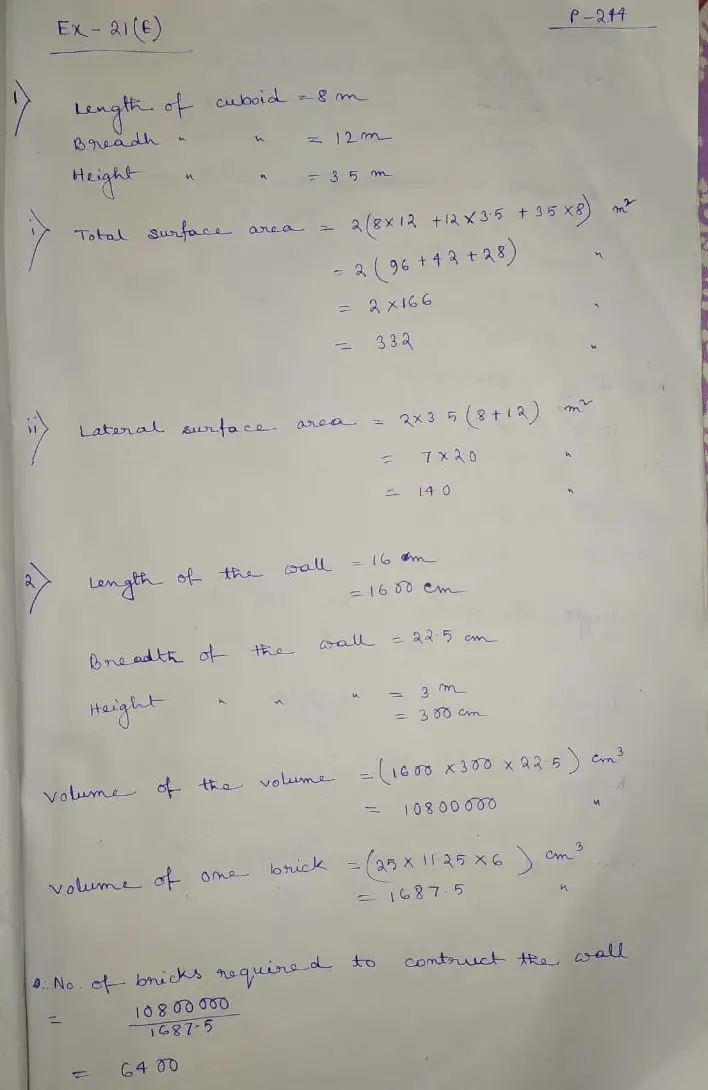 Ex - 21(E)
P-244
1) Length of cuboid = 8 m
Breadh " " = 12 m
Height " " = 3 5 m
i) Total surface area = 2(8×12 +12×3.5 + 3.5×8) m²
= 2(96+42+28) "
= 2×166 "
= 332 "
ii) Lateral surface area = 2×3 5(8+12) m²
= 7×20 "
= 140 "
2) Length of the wall = 16 m
= 1600 cm
Breadth of the wall = 22.5 cm
Height " " " = 3 m
= 300 cm
Volume of the volume = (1600 ×300 × 22.5) cm³
= 10800000 "
Volume of one brick = (25×11.25×6) cm³
= 1687.5 "
∴ No. of bricks required to contruct the wall
= 10800000
1687.5
= 6400